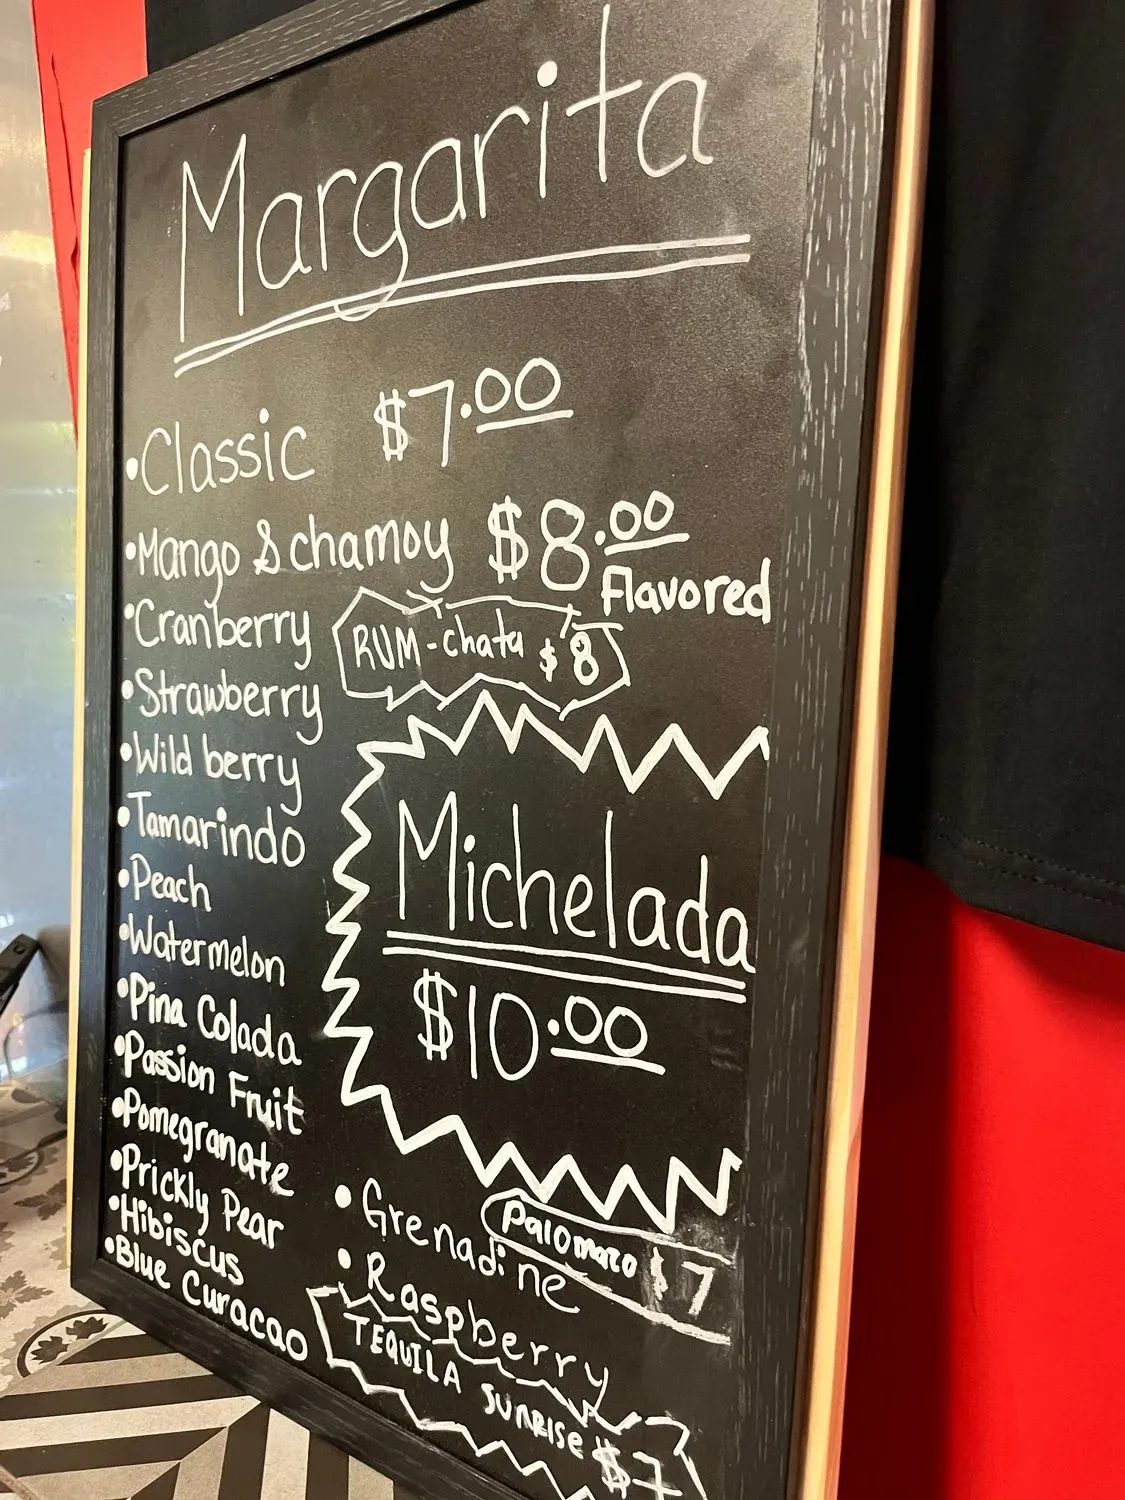 Margarita
• Classic $7.00
• Mango & chamoy $8.00
Flavored
• Cranberry
RUM-chata $8
• Strawberry
• Wild berry
• Tamarindo
• Peach
• Watermelon
• Pina Colada
• Passion Fruit
• Pomegranate
• Prickly Pear
• Hibiscus
• Blue Curacao
Michelada
$10.00
• Grenadine
Palomazo $7
• Raspberry
TEQUILA SUNRISE $7